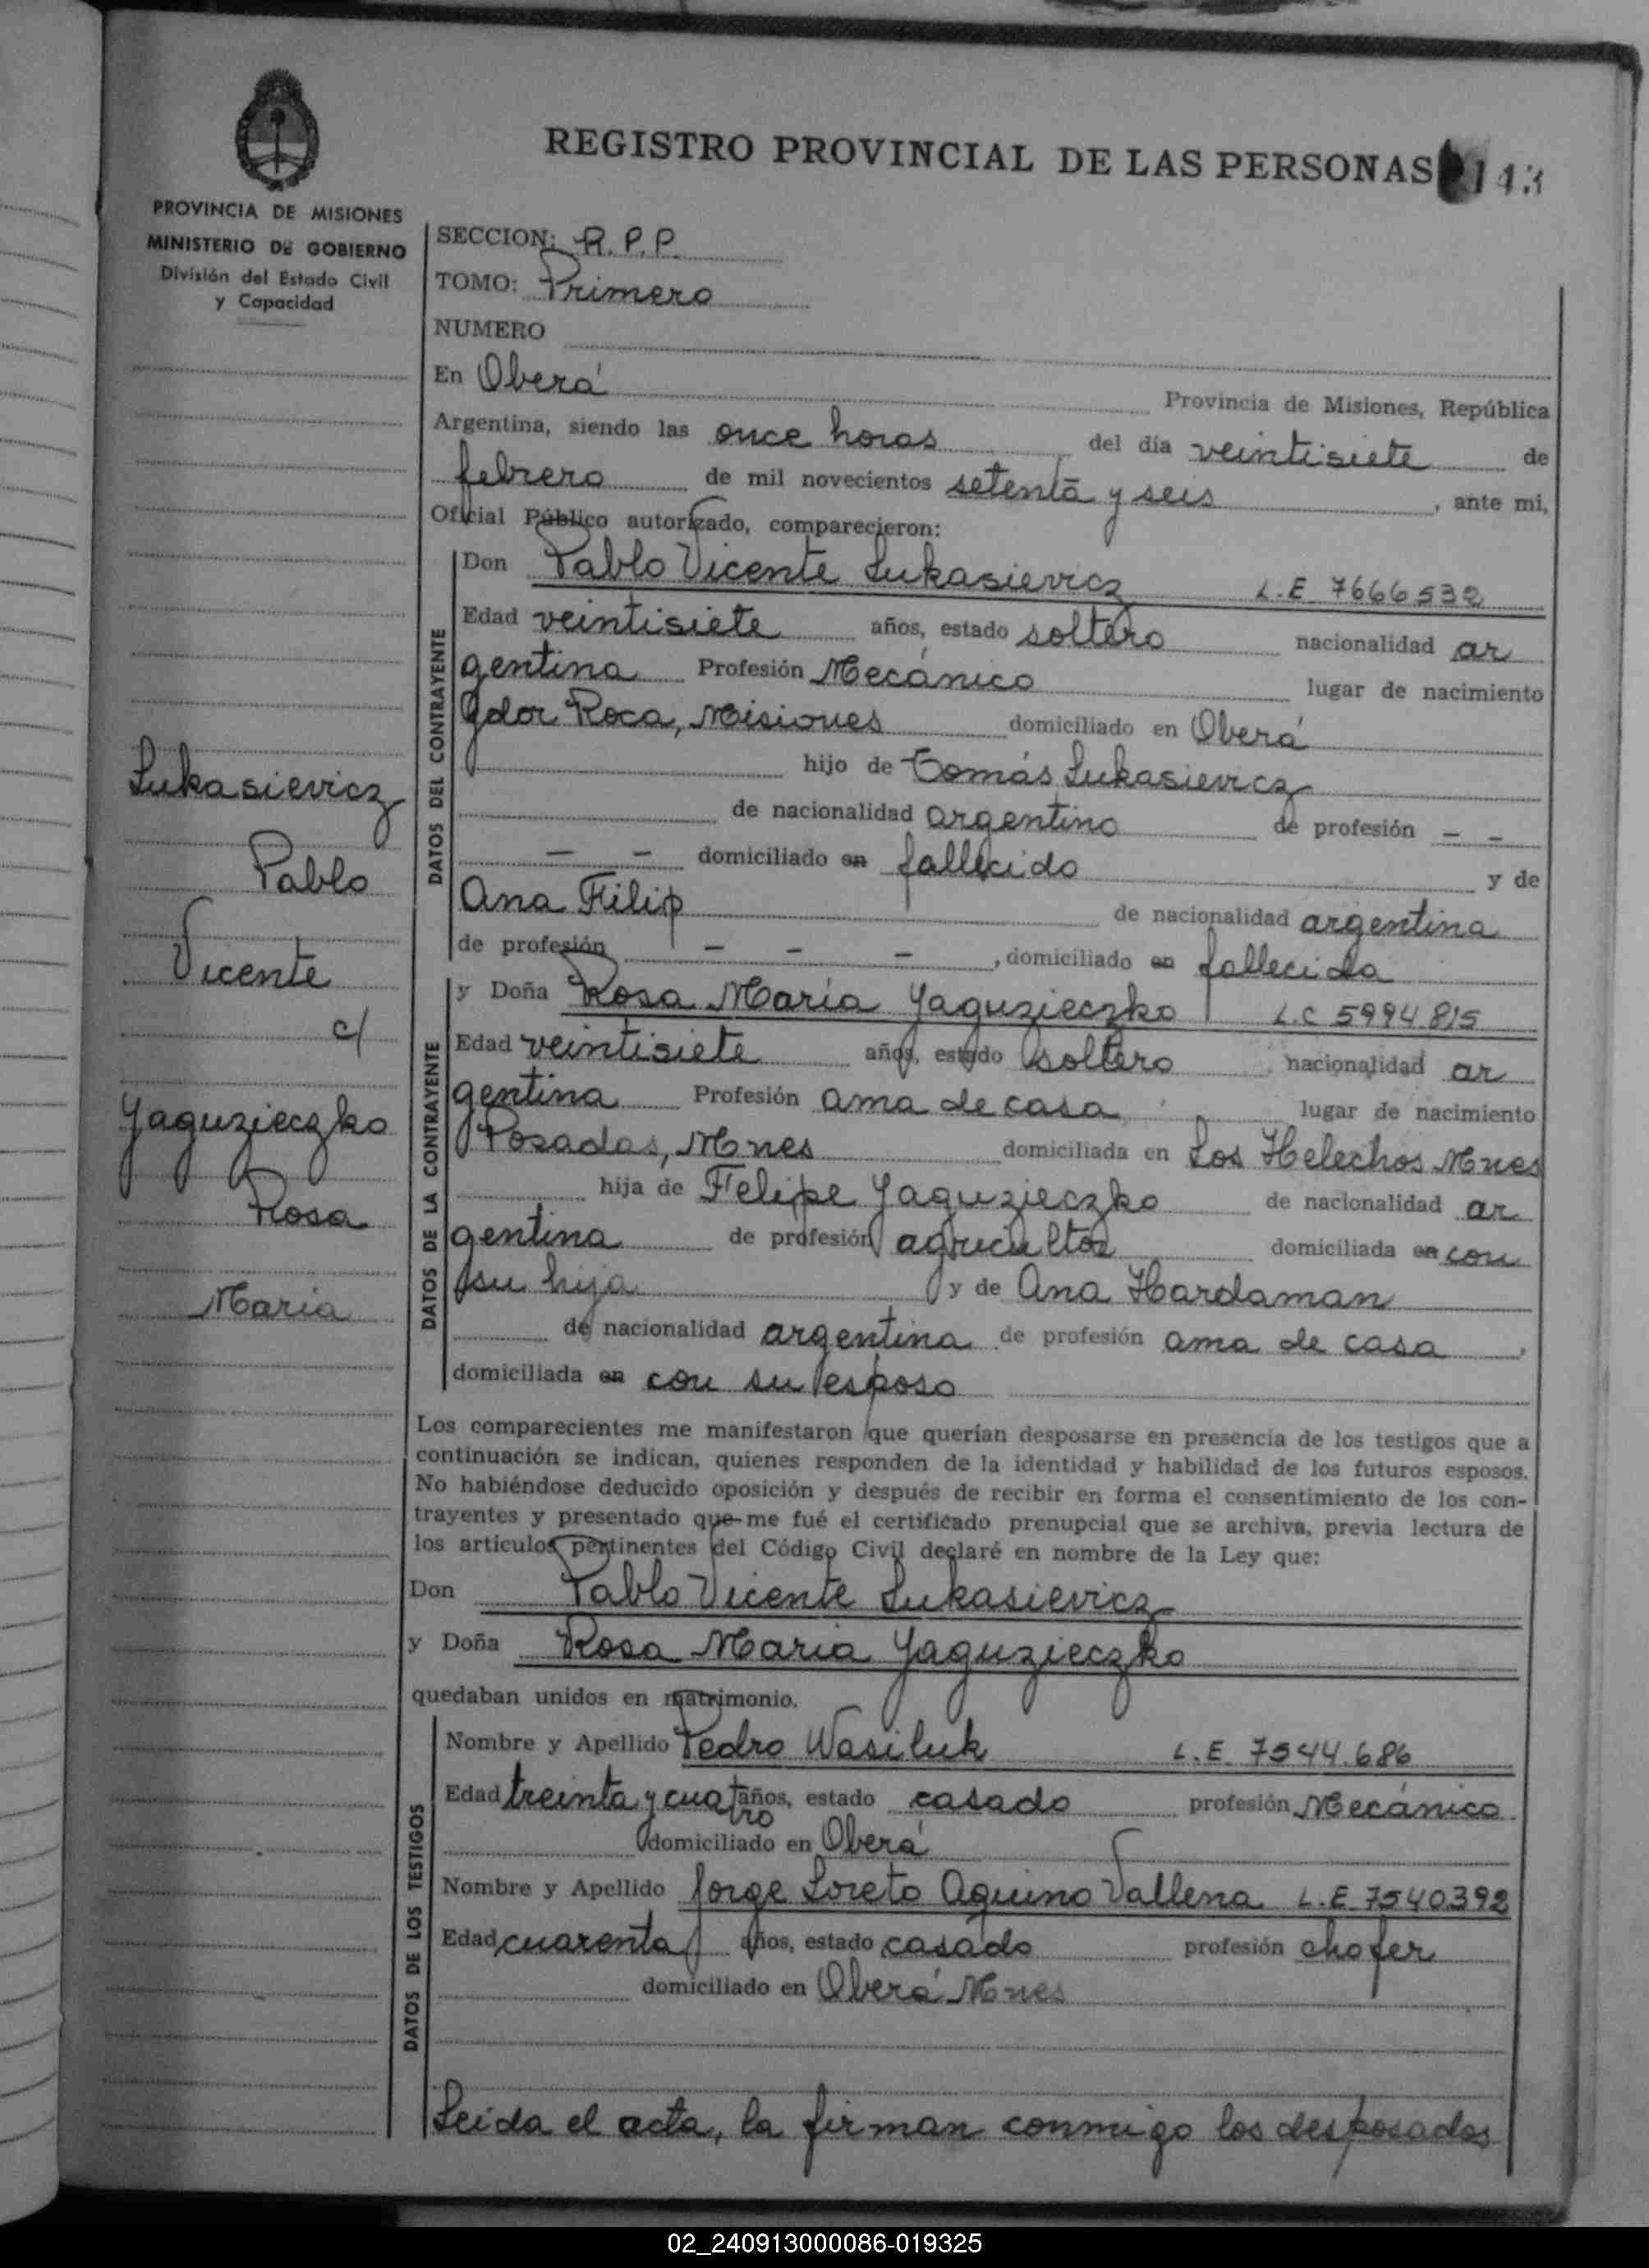 REGISTRO PROVINCIAL DE LAS PERSONAS 143
PROVINCIA DE MISIONES
MINISTERIO DE GOBIERNO
División del Estado Civil
y Capacidad
Lukasievicz
Pablo
Vicente
c/
Yaguzieczko
Rosa
Maria
SECCION: R.P.P.
TOMO: Primero
NUMERO
En Oberá Provincia de Misiones, República
Argentina, siendo las once horas del día veintisiete de
febrero de mil novecientos setenta y seis, ante mi,
Oficial Público autorizado, comparecieron:
DATOS DEL CONTRAYENTE
Don Pablo Vicente Lukasievicz L.E 7666532
Edad veintisiete años, estado soltero nacionalidad ar
gentina Profesión Mecánico lugar de nacimiento
Gdor Roca, Misiones domiciliado en Oberá
hijo de Tomás Lukasievicz
de nacionalidad argentino de profesión - -
- - domiciliado en fallecido y de
Ana Filip de nacionalidad argentina
de profesión - - -, domiciliado en fallecida
DATOS DE LA CONTRAYENTE
y Doña Rosa María Yaguzieczko L.C 5994815
Edad veintisiete años, estado soltero nacionalidad ar
gentina Profesión ama de casa lugar de nacimiento
Posadas, Mnes domiciliada en Los Helechos Mnes
hija de Felipe Yaguzieczko de nacionalidad ar
gentina de profesión agricultor domiciliada en con
su hija y de Ana Hardaman
de nacionalidad argentina de profesión ama de casa,
domiciliada en con su esposo
Los comparecientes me manifestaron que querían desposarse en presencia de los testigos que a
continuación se indican, quienes responden de la identidad y habilidad de los futuros esposos.
No habiéndose deducido oposición y después de recibir en forma el consentimiento de los con-
trayentes y presentado que me fué el certificado prenupcial que se archiva, previa lectura de
los artículos pertinentes del Código Civil declaré en nombre de la Ley que:
Don Pablo Vicente Lukasievicz
y Doña Rosa Maria Yaguzieczko
quedaban unidos en matrimonio.
DATOS DE LOS TESTIGOS
Nombre y Apellido Pedro Wasiluk L.E. 7544.686
Edad treinta y cuatro años, estado casado profesión Mecánico
domiciliado en Oberá
Nombre y Apellido Jorge Loreto Aquino Vallena L.E 7540392
Edad cuarenta años, estado casado profesión chofer
domiciliado en Oberá Mnes
Leida el acta, la firman conmigo los desposados
02_240913000086-019325